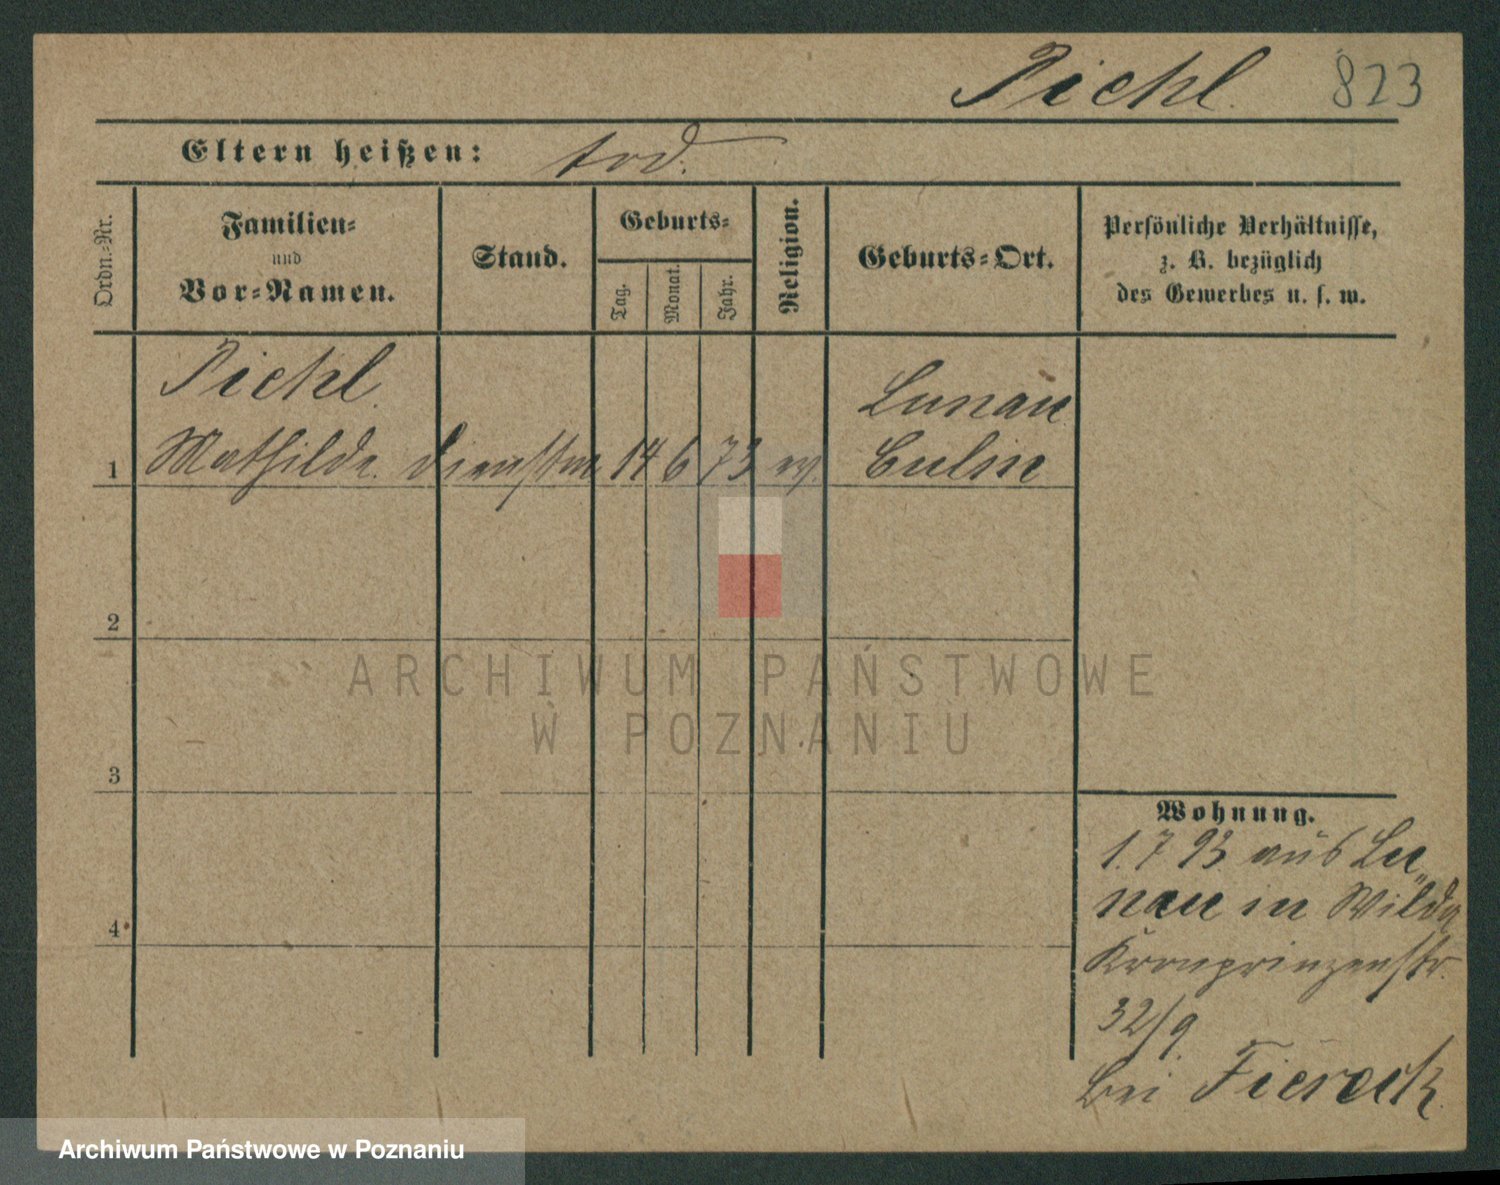 Piehl. 823
Eltern heißen: tod.
Ordn.-Nr.
Familien-
und
Vor-Namen.
Stand.
Geburts-
Tag.
Monat.
Jahr.
Religion.
Geburts-Ort.
Persönliche Verhältnisse,
z. B. bezüglich
des Gewerbes u. s. w.
Piehl.
Mathilde. 14 6 73 ev.
Lunau
Culm
1
2
3
4
Wohnung.
1.7 93 aus Lu-
nau in Wilda
Kronprinzenstr.
32/9.
bei
ARCHIWUM PAŃSTWOWE
W POZNANIU
Archiwum Państwowe w Poznaniu